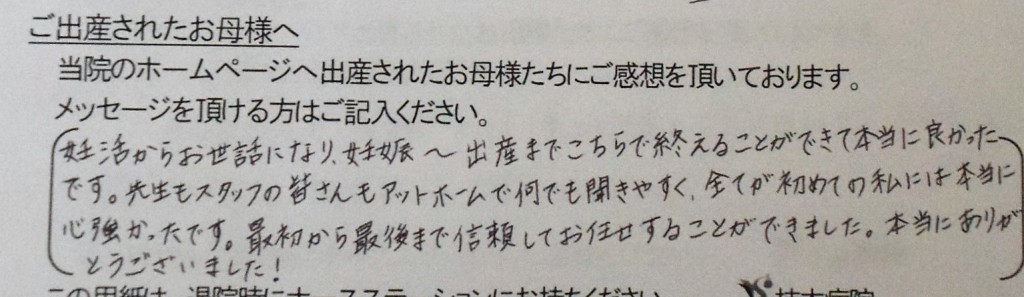 ご出産されたお母様へ
当院のホームページへ出産されたお母様たちにご感想を頂いております。
メッセージを頂ける方はご記入ください。
妊活からお世話になり、妊娠〜出産までこちらで終えることができて本当に良かった
です。先生もスタッフの皆さんもアットホームで何でも聞きやすく、全てが初めての私には本当に
心強かったです。最初から最後まで信頼してお任せすることができました。本当にありが
とうございました!
この用紙は、退院時にナースステーションにお持ちください